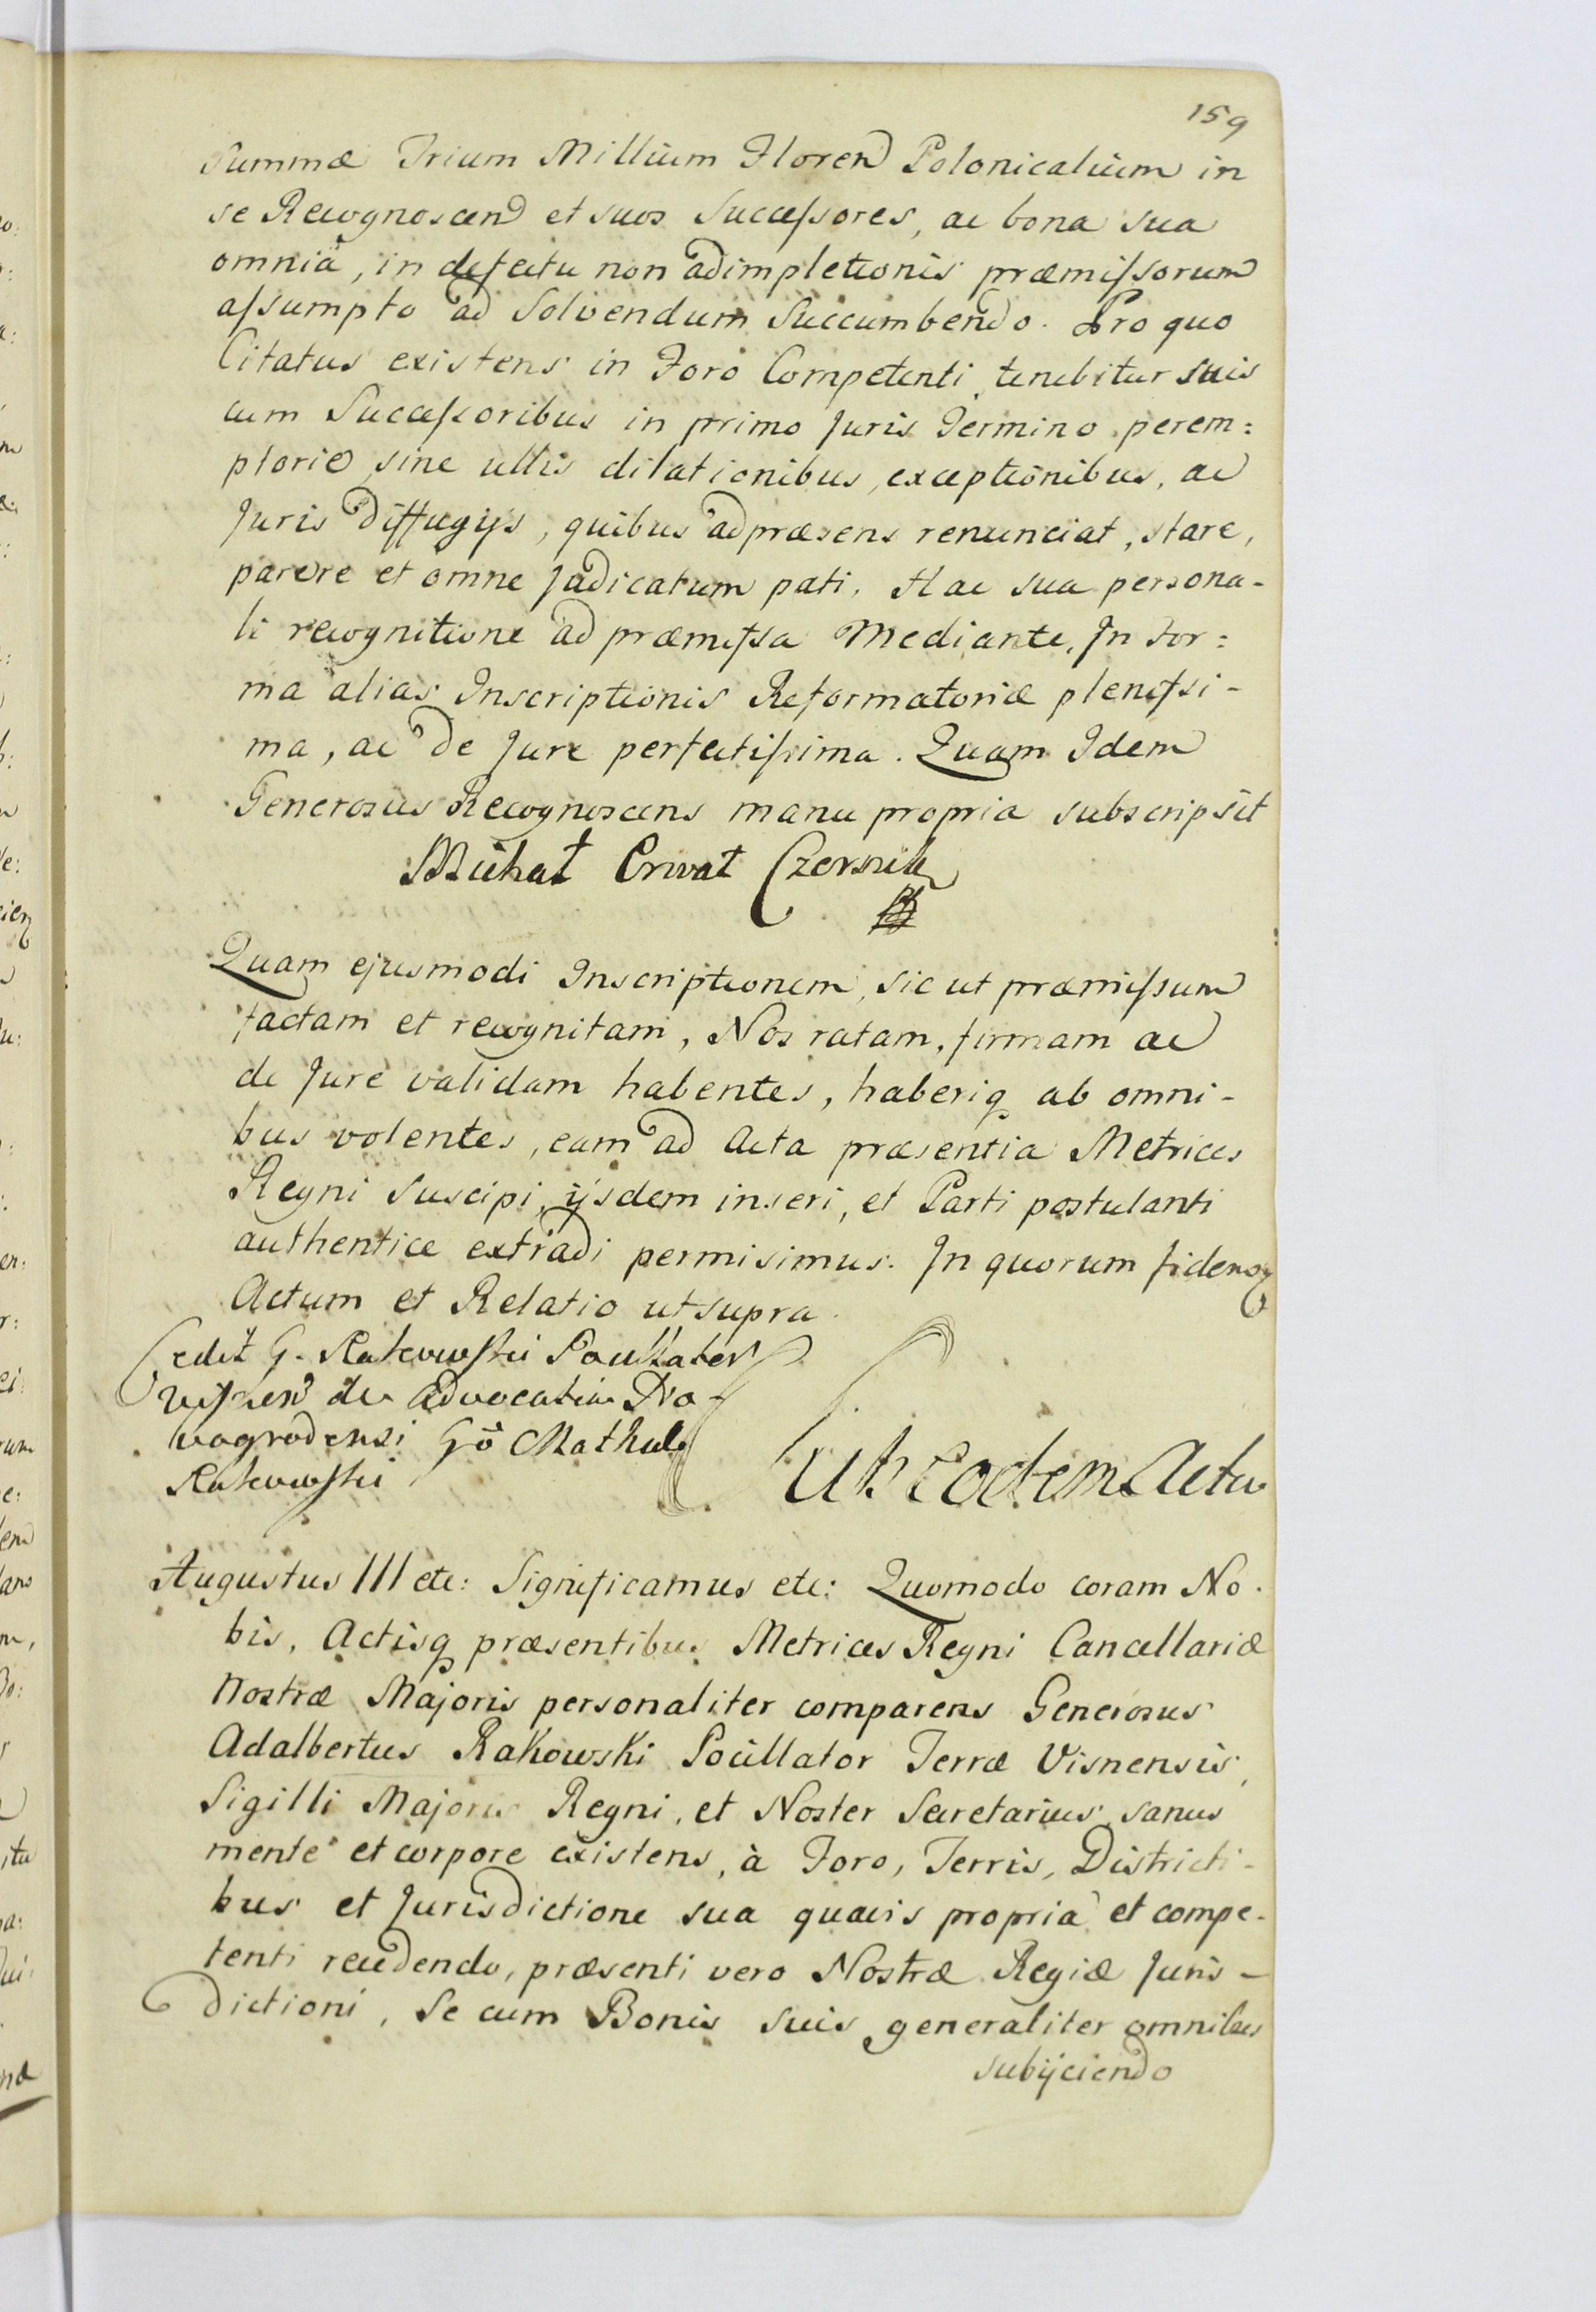 159
Summæ Trium Millium Floren Polonicalium in
se Recognoscen et suos Successores, ac bona sua
omnia, in defectu non adimpletionis præmissorum
assumpto ad Solvendum Succumbendo. Pro quo
Citatus existens in Foro Competenti, tenebitur suis
cum Successoribus in primo Juris Termino perem:
ptorie, sine ullis dilationibus, exceptionibus, ac
Juris diffugijs, quibus ad præsens renunciat, stare,
parere et omne Judicatum pati. Hac sua persona-
li recognitione ad præmissa Mediante, In for:
ma alias Inscriptionis Reformatoriæ plenissi-
ma, ac de Jure perfectissima. Quam Idem
Generosus Recognoscens manu propria subscripsit
Michał Czersnik
Quam ejusmodi Inscriptionem, sic ut præmissum
factam et recognitam, Nos ratam, firmam ac
de Jure validam habentes, haberiq ab omni-
bus volentes, eam ad Acta præsentia Metrices
Regni Suscipi, ijsdem inseri, et Parti postulanti
authentice extradi permisimus. In quorum fidem
Actum et Relatio ut supra.
Cedit G. Rakowski
de advocatia No-
vogrodensi Gö Mathul
Rakowski
Sub eodem Actu
Augustus III etc: Significamus etc: Quomodo coram No.
bis, Actisq præsentibus Metrices Regni Cancellariæ
Nostræ Majoris personaliter comparens Generosus
Adalbertus Rakowski Pocillator Terræ Visnensis,
Sigilli Majoris Regni, et Noster Secretarius, sanus
mente et corpore existens, à Foro, Terris, Districti-
bus et Jurisdictione sua quavis propria et compe-
tenti recedendo, præsenti vero Nostræ Regiæ Juris-
dictioni, Se cum Bonis suis generaliter omnibus
subijciendo